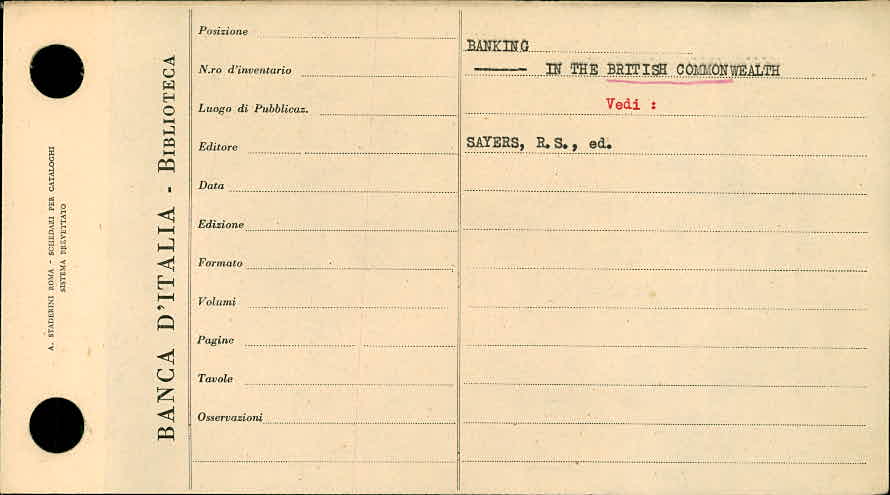 A. STADERINI ROMA - SCHEDARI PER CATALOGHI
SISTEMA BREVETTATO
BANCA D'ITALIA - BIBLIOTECA
Posizione
N.ro d'inventario
Luogo di Pubblicaz.
Editore
Data
Edizione
Formato
Volumi
Pagine
Tavole
Osservazioni
BANKING
——— IN THE BRITISH COMMONWEALTH
Vedi :
SAYERS, R.S., ed.